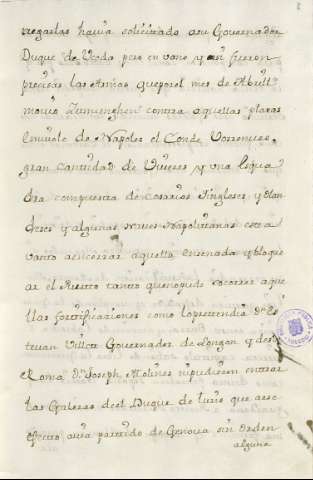 negarlas havia solicitado a su Governador
Duque de Uceda pero en vano y asi fueron
precisas las Armas que por el mes de Abril
movio contra aquellas plazas
de Napoles el Conde
gran cantidad de Viveres y una Esqua
dra compuesta de Cosarios Ingleses y Olan
deses y algunas naves Napolitanas esta
aencerrar aquella ensenada y bloque
ar el Puerto tanto que no pudo socorrer aque
llas fortificaciones como lo pretendia Dn Es
tevan Governador de Longon y des
de Roma Dn Joseph Molines ni pudieron entrar
las Galeras del Duque de turis que a este
efecto avia partido de Genova sin orden
alguna